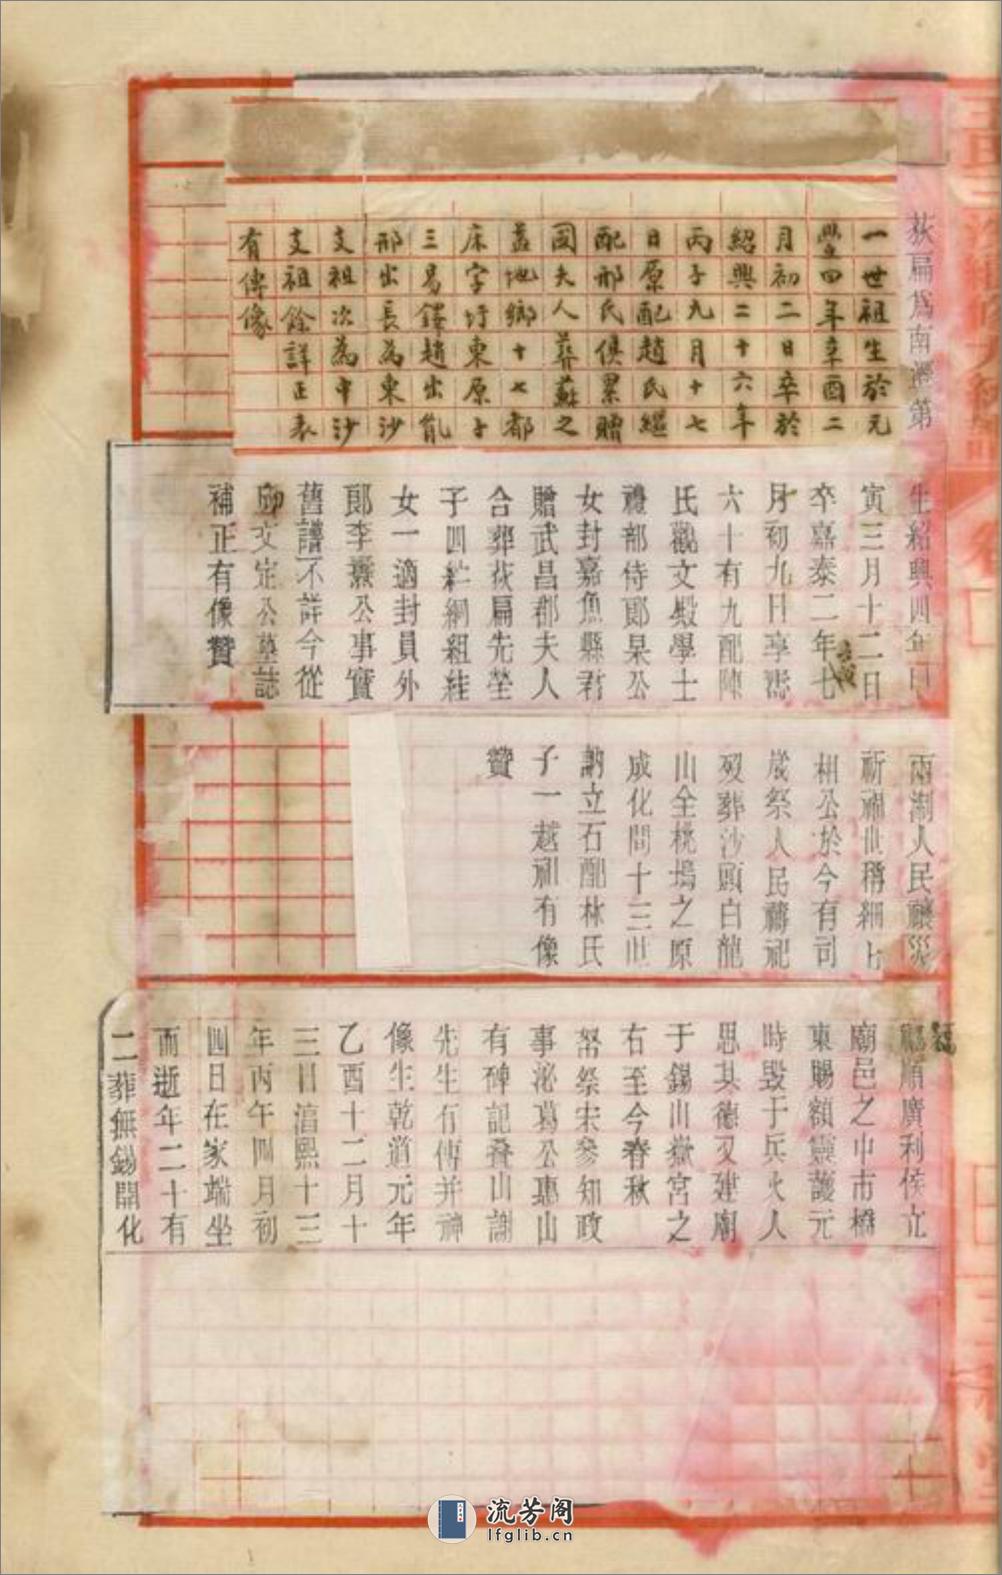 荻扁爲南遷第
一世祖生於元
豐四年辛酉二
月初二日卒於
紹興二十六年
丙子九月十七
日原配趙氏繼
配邢氏俱累贈
國夫人葬蘇之
盖地鄉十七都
床字圩東原子
三易鐸趙出
邢出長為東沙
支祖次為中沙
支祖餘詳正表
有傳像
生紹興四年甲
寅三月十二日
卒嘉泰二年七
月初九日享
六十有九配陳
氏觀文殿學士
禮部侍郎杲公
女封嘉魚縣君
贈武昌郡夫人
合葬荻扁先塋
子四綱組絓
女一適封員外
郎李公事實
舊譜不詳今從
文定公墓誌
補正有像贊
兩湖人民禳災
祈福世稱細七
相公於今有司
歲祭人民禱祀
歿葬沙頭白龍
山全桃塢之原
成化間十三世
訥立石配林氏
子一越祖有像
贊
順廣利侯立
廟邑之中市橋
東賜額靈護元
時毁于兵火人
思其德又建廟
于錫山嶽宮之
右至今春秋
祭宋參知政
事泌葛公惠山
有碑記叠山謝
先生有傳并神
像生乾道元年
乙酉十二月十
三日淳熙十三
年丙午四月初
四日在家端坐
而逝年二十有
二葬無錫開化
流芳阁
lfglib.cn